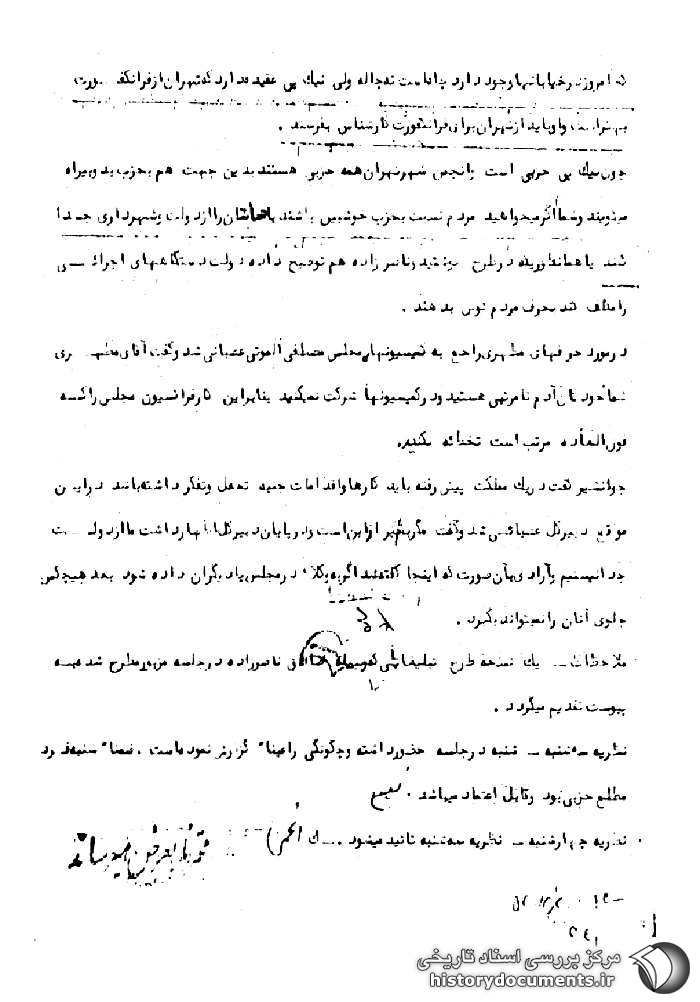 که امروز در خیابانها وجود دارد چاه است نه چاله ولی نیک پی عقیده دارد که تهران از فرانکفورت
بهتر است و او باید از تهران برای فرانکفورت کارشناس بفرستد .
چون نیک پی حزبی است و انجمن شهر تهران همه حزبی هستند بدین جهت هم بحزب بد و بیراه
میگویند و شما اگر میخواهید مردم نسبت بحزب خوشبین باشند یا حسابتان را از دولت و شهرداری جدا
کنید یا همانطوریکه در طرح و ناصرزاده هم توضیح داده دولت و دستگاههای اجرائی
را مکلف کند بحرف مردم گوش بدهند .
در مورد حرفهای مطهری راجع به کمیسیونهای مجلس مصطفی الموتی عصبانی شد و گفت آقای مطهری
شما خودتان آدم نامرتبی هستید و در کمیسیونها شرکت نمیکنید بنابراین کار فراکسیون مجلس را که
فوق العاده مرتب است تخطئه نکنید.
جوانشیر گفت در یک مملکت پیش رفته باید کارها و اقدامات جنبه تعقل و تفکر داشته باشد در این
موقع دبیرکل عصبانی شد و گفت مگر بغیر از این است و در پایان دبیرکل اظهار داشت ما از دولت
جدا نیستیم و آزادی بآن صورت که اینجا گفته شد اگر به وکلاء در مجلس یا دیگران داده شود بعد هیچکس
جلوی آنان را نمیتواند بگیرد .
ملاحظات ــ یک نسخه طرح تبلیغاتی ناصرزاده در جلسه مزبور مطرح شد
پیوست تقدیم میگردد .
نظریه سه شنبه ــ شنبه در جلسه حضور داشته و چگونگی را عینا" گزارش نموده است . ضمنا" شنبه فرد
مطلع حزبی بود و قابل اعتماد میباشد .
نظریه چهارشنبه ــ نظریه سه شنبه تائید میشود .
مرکز بررسی اسناد تاریخی
historydocuments.ir